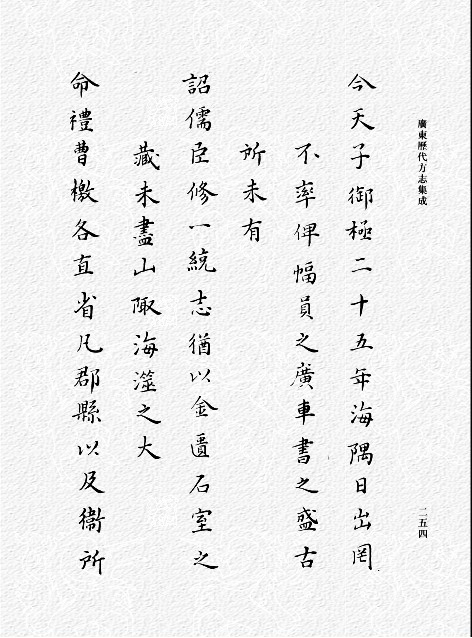 廣東歷代方志集成
二五四
今天子御極二十五年海隅日出罔
不率俾幅員之廣車書之盛古
所未有
詔儒臣修一統志猶以金匱石室之
藏未盡山陬海澨之大
命禮曹檄各直省凡郡縣以及衞所